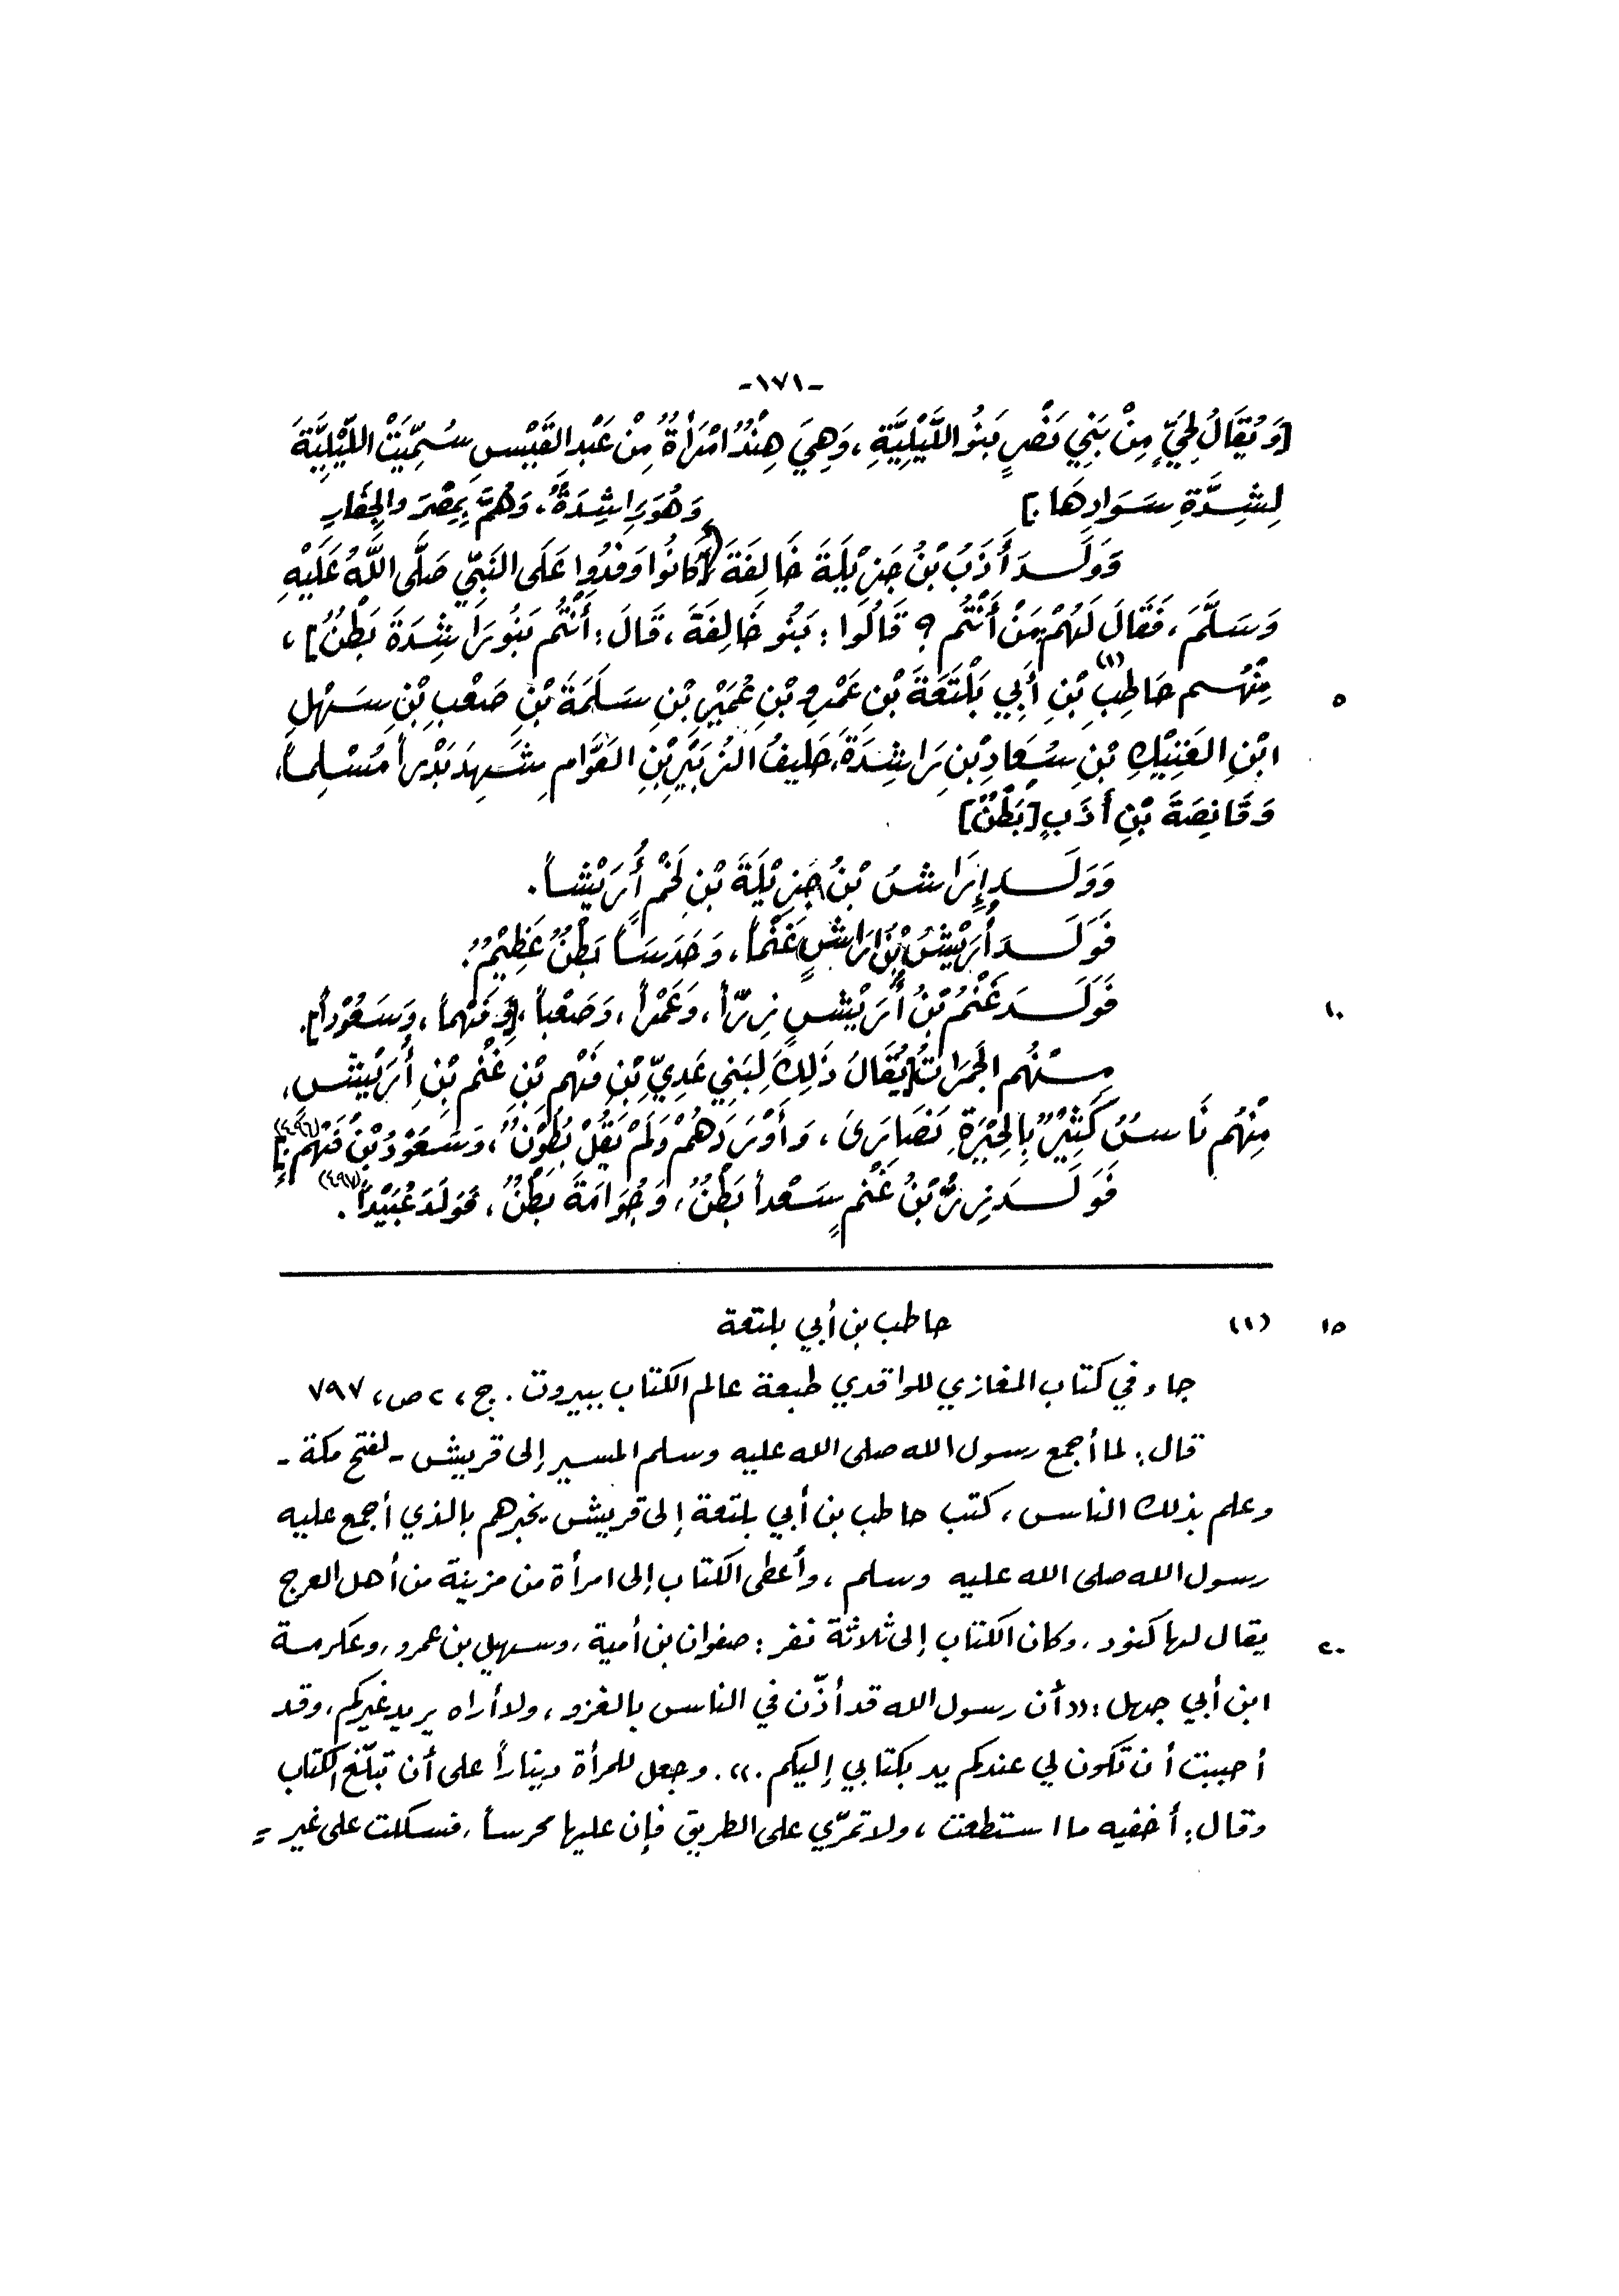 -١٧١-
[وَيُقَالُ لِحَيٍّ مِنْ بَنِي نَصْرٍ بَنُو اللَّيْلِيَّةِ، وَهِيَ هِنْدُ امْرَأَةٌ مِنْ عَبْدِ القَيْسِ سُمِّيَتْ اللَّيْلِيَّةَ
لِشِدَّةِ سَوَادِهَا.]
وَهُوَ رَاشِدَةُ، وَهُمْ بِمِصْرَ والجِفَارِ
وَوَلَدَ أَذَبُ بْنُ جَزِيْلَةَ خَالِفَةَ [كَانُوا وَفَدُوا عَلَى النَّبِيِّ صَلَّى اللَّهُ عَلَيْهِ
وَسَلَّمَ، فَقَالَ لَهُمْ مَنْ أَنْتُم ؟ قَالُوا : بَنُو خَالِفَةَ، قَالَ : أَنْتُم بَنُو رَاشِدَةَ بَطْنٌ]،
٥ مِنْهُم حَاطِبُ(١) بْنِ أَبِي بَلْتَعَةَ بْنِ عَمْرِو بْنِ عُمَيْرِ بْنِ سَلَمَةَ بْنِ صَعْبِ بْنِ سَهْلِ
ابْنِ العَتِيْكِ بْنِ سُعَادِ بْنِ رَاشِدَةَ، حَلِيفُ الزُّبَيْرِ بْنِ العَوَّامِ شَهِدَ بَدْراً مُسْلِماً،
وَقَانِصَةَ بْنِ أَذَبٍ [بَطْنٌ]
وَوَلَدَ إِرَاشُ بْنُ جَزِيْلَةَ بْنِ لَخْمٍ أُرَيْشاً.
فَوَلَدَ أُرَيْشُ بْنُ إِرَاشٍ غَنْماً، وَحَدَساً بَطْنٌ عَظِيْمٌ.
١٠ فَوَلَدَ غَنْمُ بْنُ أُرَيْشٍ زِرّاً، وَعَمْراً، وَصَعْباً، [وَفَهْماً، وَسَعُوْداً].
مِنْهُم الجَمَرَاتُ [يُقَالُ ذَلِكَ لِبَنِي عَدِيِّ بْنِ فَهْمِ بْنِ غَنْمِ بْنِ أُرَيْشٍ،
مِنْهُم نَاسٌ كَثِيْرٌ بِالحِيْرَةِ نَصَارَى، وَأَوْرَدَهُمْ وَلَمْ يَقُلْ بُطُوْنٌ، وَسَعُوْدُ بْنُ فَهْمٍ.](٤٩٦)
فَوَلَدَ زِرُّ بْنُ غَنْمٍ سَعْداً بَطْنٌ، وَجُوَامَةَ بَطْنٌ، فَوَلَدَ عُبَيْداً(٤٩٧).
١٥ (١) حاطب بن أبي بلتعة
جاء في كتاب المغازي للواقدي طبعة عالم الكتاب ببيروت. ج، ٢ ص، ٧٩٧
قال: لما أجمع رسول الله صلى الله عليه وسلم المسير إلى قريش - لفتح مكة -
وعلم بذلك الناس، كتب حاطب بن أبي بلتعة إلى قريش يخبرهم بالذي أجمع عليه
رسول الله صلى الله عليه وسلم، وأعطى الكتاب إلى امرأة من مزينة من أهل العرج
٢٠ يقال لها كنود، وكان الكتاب إلى ثلاثة نفر: صفوان بن أمية، وسهيل بن عمرو، وعكرمة
ابن أبي جهل: ((أن رسول الله قد أذّن في الناس بالغزو، ولا أراه يريد غيركم، وقد
أحببت أن تكون لي عندكم يد بكتابي إليكم.)). وجعل للمرأة ديناراً على أن تبلّغ الكتاب
وقال: أخفيه ما استطعت، ولا تمرّي على الطريق فإن عليها محرساً، فسلكت على غير =